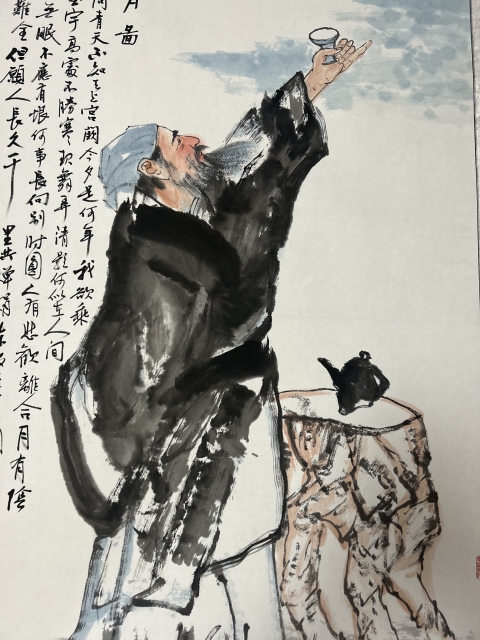 月圖
問青天不知天上宮闕今夕是何年我欲乘
宇高處不勝寒起舞弄清影何似在人間
無眠不應有恨何事長向别時圓人有悲歡離合月有陰
難全但願人長久千里共嬋娟